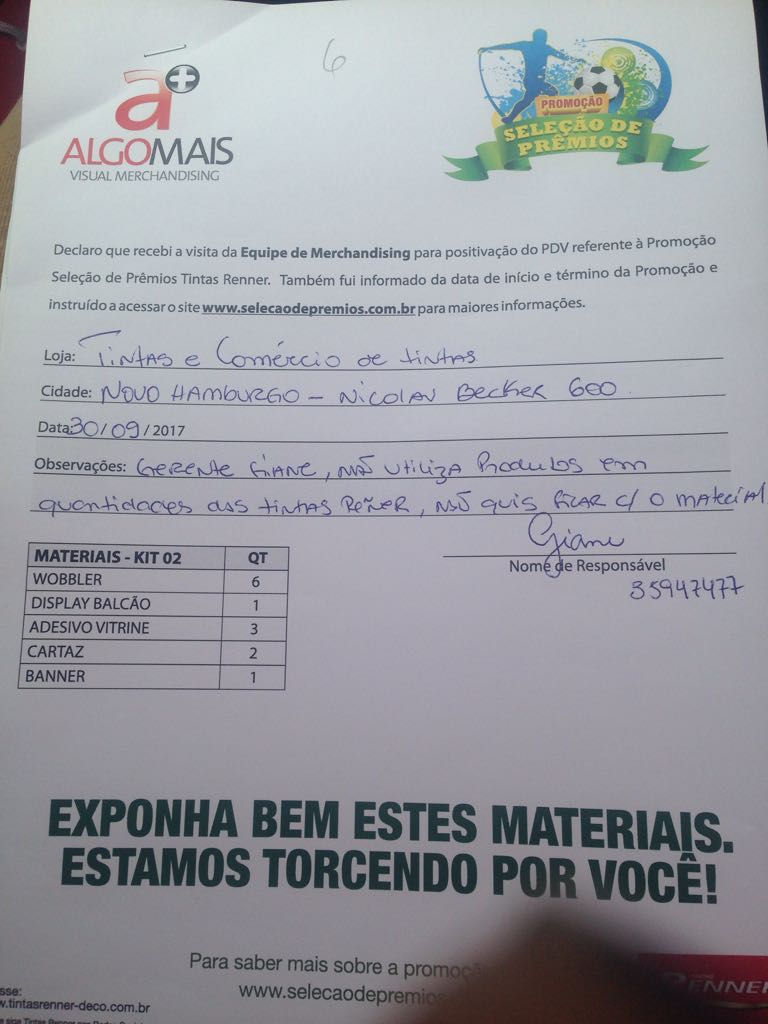 6
a+
ALGOMAIS
VISUAL MERCHANDISING
PROMOÇÃO
SELEÇÃO DE
PRÊMIOS
Declaro que recebi a visita da Equipe de Merchandising para positivação do PDV referente à Promoção
Seleção de Prêmios Tintas Renner. Também fui informado da data de início e término da Promoção e
instruído a acessar o site www.selecaodepremios.com.br para maiores informações.
Loja: Tintas e Comércio de tintas
Cidade: Novo Hamburgo - Nicolau Becker 600.
Data: 30/09/2017
Observações: Gerente Giane, não utiliza Produtos em
quantidades das tintas Reñer, não quis ficar c/ o material
Giane
Nome de Responsável
35947477
MATERIAIS - KIT 02 QT
WOBBLER 6
DISPLAY BALCÃO 1
ADESIVO VITRINE 3
CARTAZ 2
BANNER 1
EXPONHA BEM ESTES MATERIAIS.
ESTAMOS TORCENDO POR VOCÊ!
Para saber mais sobre a promoçã
www.selecaodepremios
RENNER
sse:
w.tintasrenner-deco.com.br